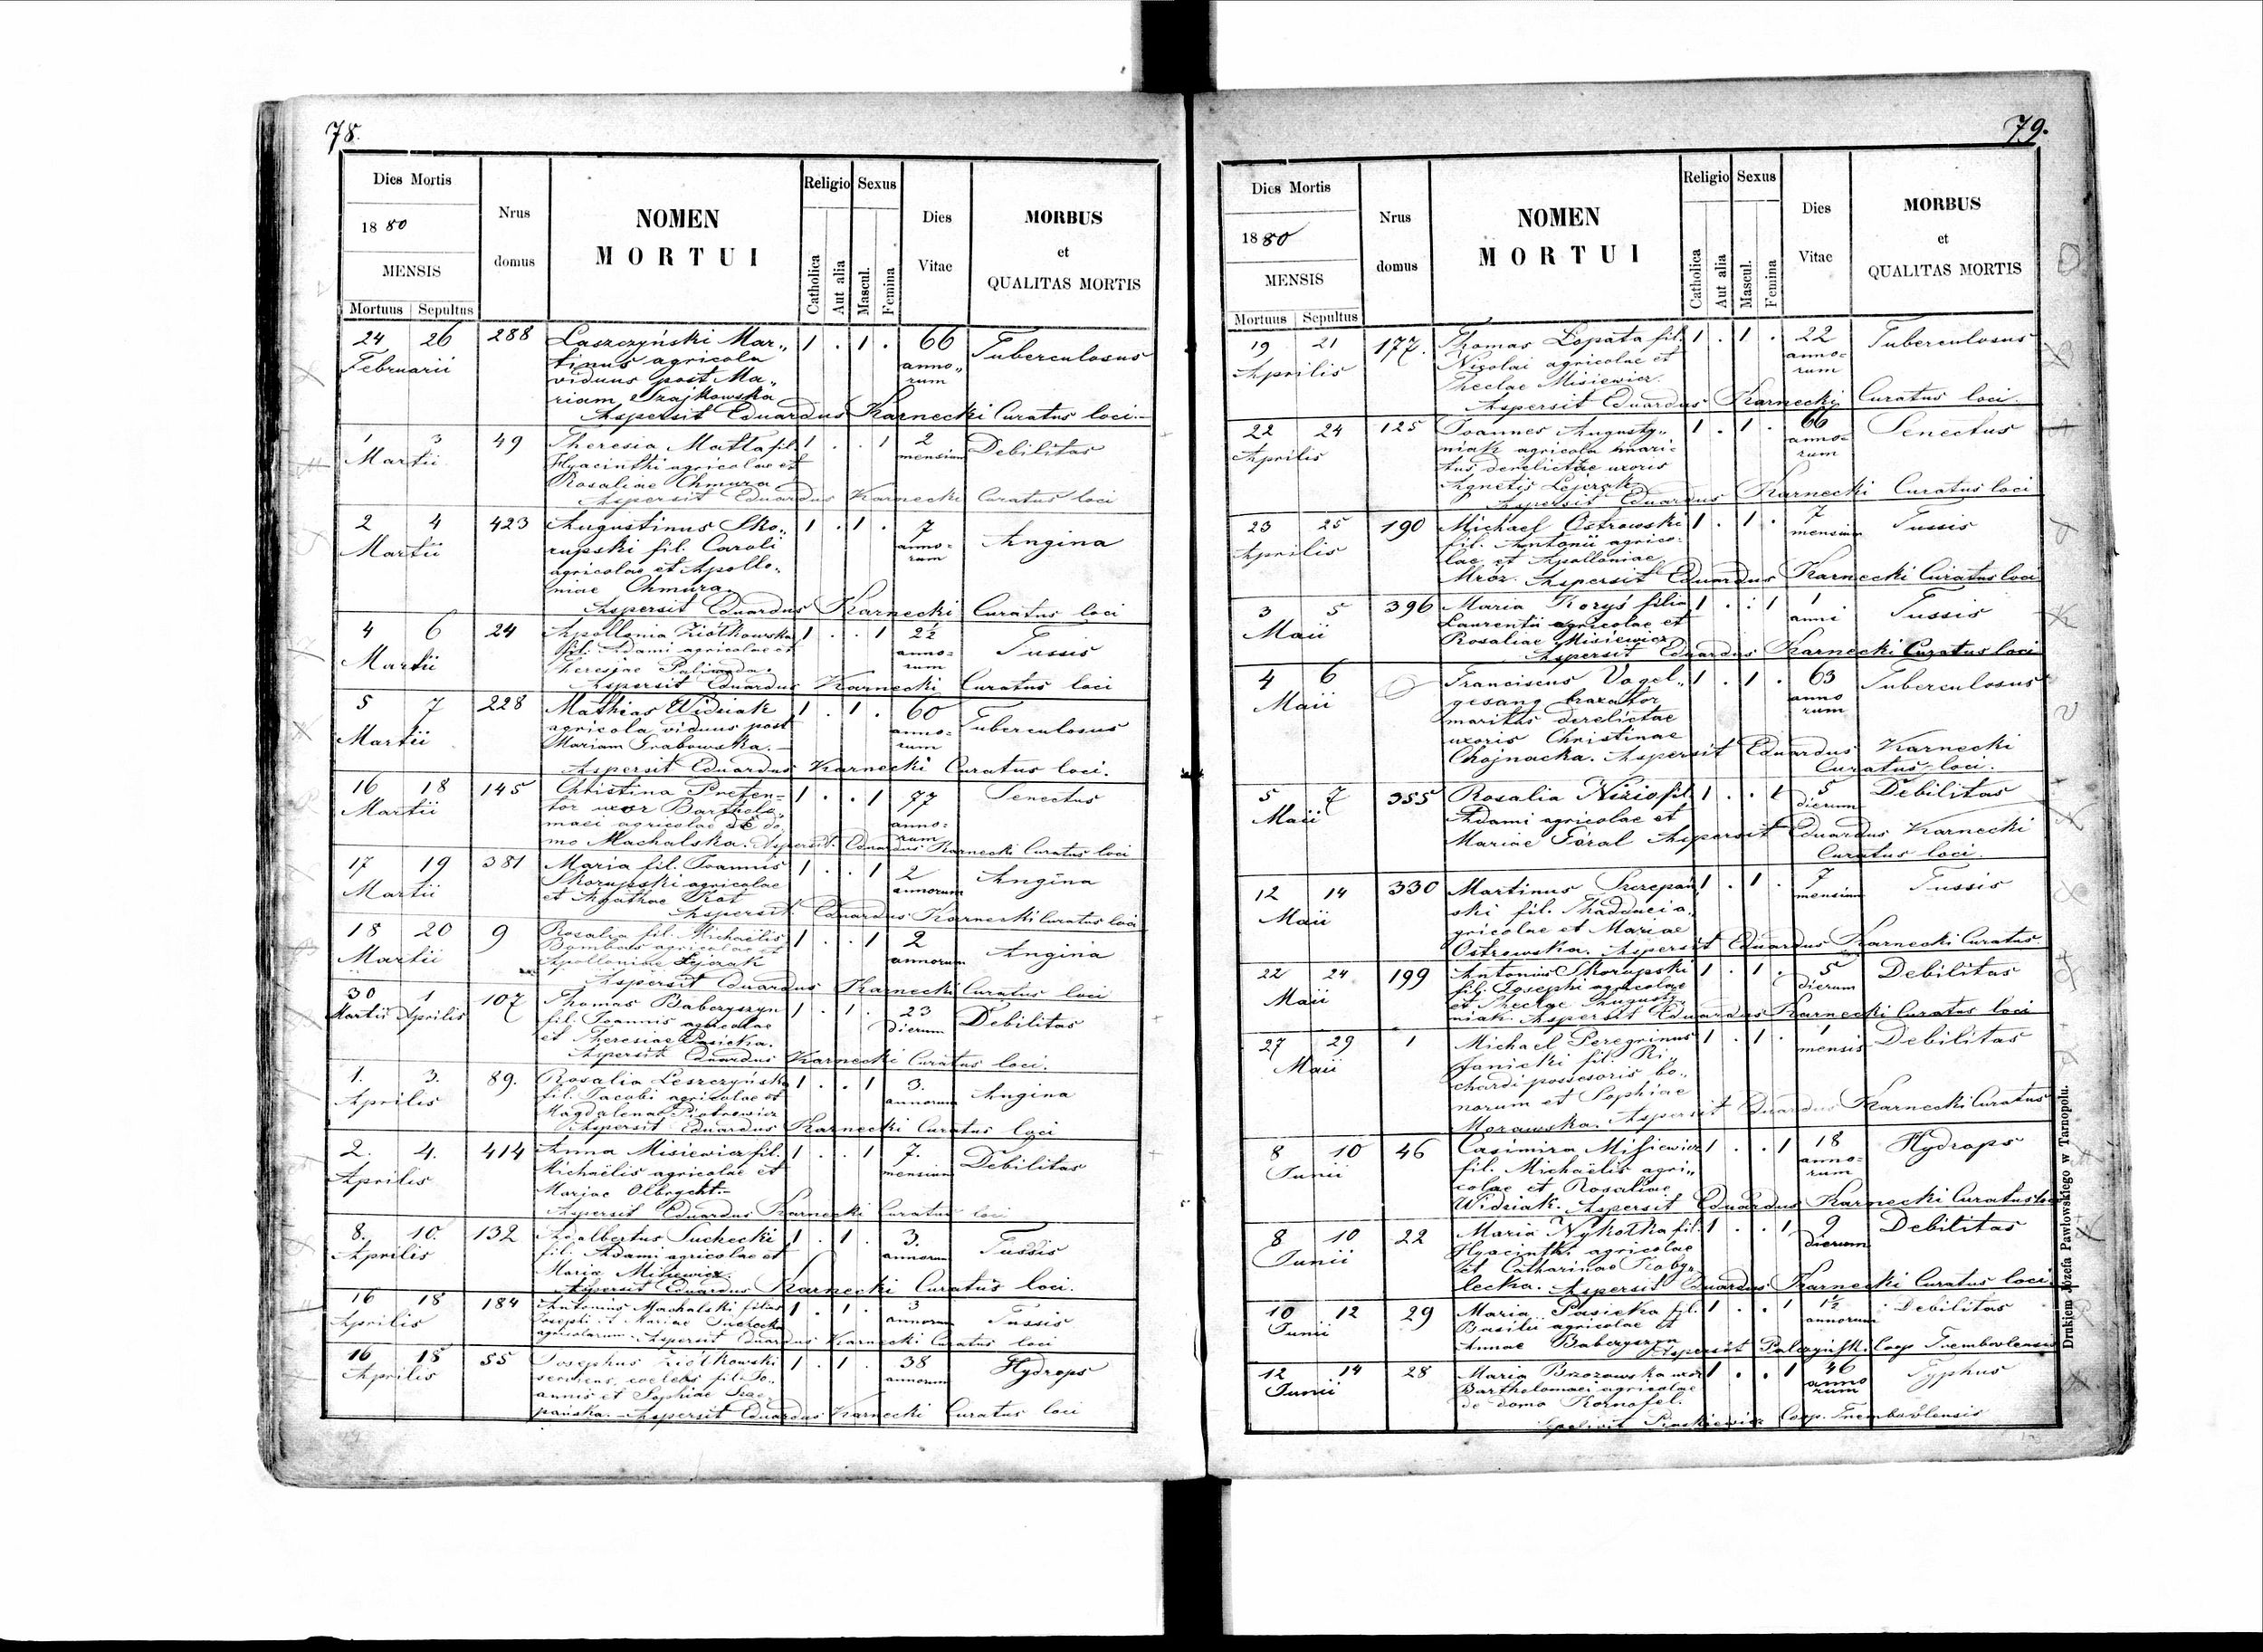 78.
Dies Mortis
1880
MENSIS
Mortuus Sepultus
Nrus domus
NOMEN
MORTUI
Religio
Catholica
Aut alia
Sexus
Mascul.
Femina
Dies Vitae
MORBUS
et
QUALITAS MORTIS
24 26 288 Laszczyński Mar„ 1 . 1 . 66 Tuberculosus
Februarii tinus agricola anno„
viduus post Ma„ rum
riam Szajkowska
Aspersit Eduardus Karnecki Curatus loci.
1 3 49 Theresia Matla fil. 1 . . 1 2 Debilitas
Martii Hyacinthi agricolae et mensium
Rosaliae Chmura
Aspersit Eduardus Karnecki Curatus loci
2 4 423 Augustinus Sko„ 1 . 1 . 7 Angina
Martii rupski fil. Caroli anno=
agricolae et Apollo„ rum
niae Chmura.
Aspersit Eduardus Karnecki Curatus loci
4 6 24 Apollonia Ziółkowska 1 . . 1 2½ Tussis
Martii fil. Adami agricolae et anno=
Theresiae rum
Aspersit Eduardus Karnecki Curatus loci
5 7 228 Mathias Widziak 1 . 1 . 60 Tuberculosus
Martii agricola viduus post anno=
Mariam Grabowska. rum
Aspersit Eduardus Karnecki Curatus loci.
16 18 145 Christina Preten= 1 . . 1 77 Senectus
Martii tor uxor Bartholo„ anno=
maei agricolae de do„ rum
mo Machalska. Aspersit Eduardus Karnecki Curatus loci
17 19 381 Maria fil. Joannis 1 . . 1 2 Angina
Martii Skorupski agricolae annorum
et Agathae Kot
Aspersit Eduardus Karnecki Curatus loci
18 20 9 Rosalia fil. Michaëlis 1 . . 1 2 Angina
Martii agricolae et annorum
Apolloniae Lejczak
Aspersit Eduardus Karnecki Curatus loci
30 1 107 Thomas Baberyszyn 1 . 1 . 23 Debilitas
Martii Aprilis fil. Joannis agricolae dierum
et Theresiae Pasieka.
Aspersit Eduardus Karnecki Curatus loci.
1. 3. 89. Rosalia Leszczyńska 1 . . 1 3. Angina
Aprilis fil. Jacobi agricolae et annorum
Magdalenae Piotrowicz
Aspersit Eduardus Karnecki Curatus loci
2. 4. 414 Anna Misiewicz fil. 1 . . 1 7. Debilitas
Aprilis Michaëlis agricolae et mensium
Mariae Olbrycht.–
Aspersit Eduardus Karnecki Curatus loci
8. 10. 132 Adalbertus Suchecki 1 . 1 . 3. Tussis
Aprilis fil. Adami agricolae et annorum
Maria Misiewicz.
Aspersit Eduardus Karnecki Curatus loci.
16 18 184 Antonius Machalski filius 1 . 1 . 3 Tussis
Aprilis Josephi et Mariae Suchecka annorum
agricolarum. Aspersit Eduardus Karnecki Curatus loci
16 18 55 Josephus Ziółkowski 1 . 1 . 38 Hydrops
Aprilis serviens, coelebs fil. Jo„ annorum
annis et Sophiae Szcze„
pańska. Aspersit Eduardus Karnecki Curatus loci
79.
Dies Mortis
1880
MENSIS
Mortuus Sepultus
Nrus domus
NOMEN
MORTUI
Religio
Catholica
Aut alia
Sexus
Mascul.
Femina
Dies Vitae
MORBUS
et
QUALITAS MORTIS
19 21 177. Thomas Łopata fil. 1 . 1 . 22 Tuberculosus
Aprilis Nicolai agricolae et anno=
Theclae Misiewicz. rum
Aspersit Eduardus Karnecki Curatus loci.
22 24 125 Joannes Augusty„ 1 . 1 . 66 Senectus
Aprilis niak agricola mari= anno=
tus derelictae uxoris rum
Agnetis Lejczak
Aspersit Eduardus Karnecki Curatus loci
23 25 190 Michael Ostrowski 1 . 1 . 7 Tussis
Aprilis fil. Antonii agrico= mensium
lae et Apolloniae
Mróz. Aspersit Eduardus Karnecki Curatus loci
3 5 396 Maria Koryś filia 1 . . 1 1 Tussis
Maii Laurentii agricolae et anni
Rosaliae Misiewicz
Aspersit Eduardus Karnecki Curatus loci
4 6 Franciscus Vogel„ 1 . 1 . 63 Tuberculosus
Maii gesang braxator anno
maritus derelictae rum
uxoris Christinae
Chojnacka. Aspersit Eduardus Karnecki
Curatus loci.
5 7 355 Rosalia Nizio fil. 1 . . 1 5 Debilitas
Maii Adami agricolae et dierum
Mariae Góral Aspersit Eduardus Karnecki
Curatus loci.
12 14 330 Martinus Szczepań„ 1 . 1 . 7 Tussis
Maii ski fil. Thaddaei a„ mensium
gricolae et Mariae
Ostrowska. Aspersit Eduardus Karnecki Curatus.
22 24 199 Antonius Skorupski 1 . 1 . 5 Debilitas
Maii fil. Josephi agricolae dierum
et Theclae Augusty„
niak. Aspersit Eduardus Karnecki Curatus loci
27 29 1 Michael Peregrinus 1 . 1 . 1 Debilitas
Maii Janicki fil. Ri„ mensis
chardi possesoris bo„
norum et Sophiae
Morawska. Aspersit Eduardus Karnecki Curatus
8 10 46 Casimira Misiewicz 1 . . 1 18 Hydrops
Junii fil. Michaëlis agri„ anno=
colae et Rosaliae rum
Widziak. Aspersit Eduardus Karnecki Curatus loci
8 10 22 Maria Nykołka fil. 1 . . 1 9 Debilitas
Junii Hyacinthi agricolae dierum
et Catharinae Koby„
lecka. Aspersit Eduardus Karnecki Curatus loci
10 12 29 Maria Pasieka fil. 1 . . 1 1½ Debilitas
Junii Basilii agricolae et annorum
Annae Baberyszyn Aspersit Palczyński Coop Trembovlensis
12 14 28 Maria Brzozowska uxor 1 . . 1 46 Typhus
Junii Bartholomaei agricolae anno
de domo Kornafel. rum
Sepelivit Piaskiewicz Coop. Trembovlensis
Drukiem Józefa Pawłowskiego w Tarnopolu.